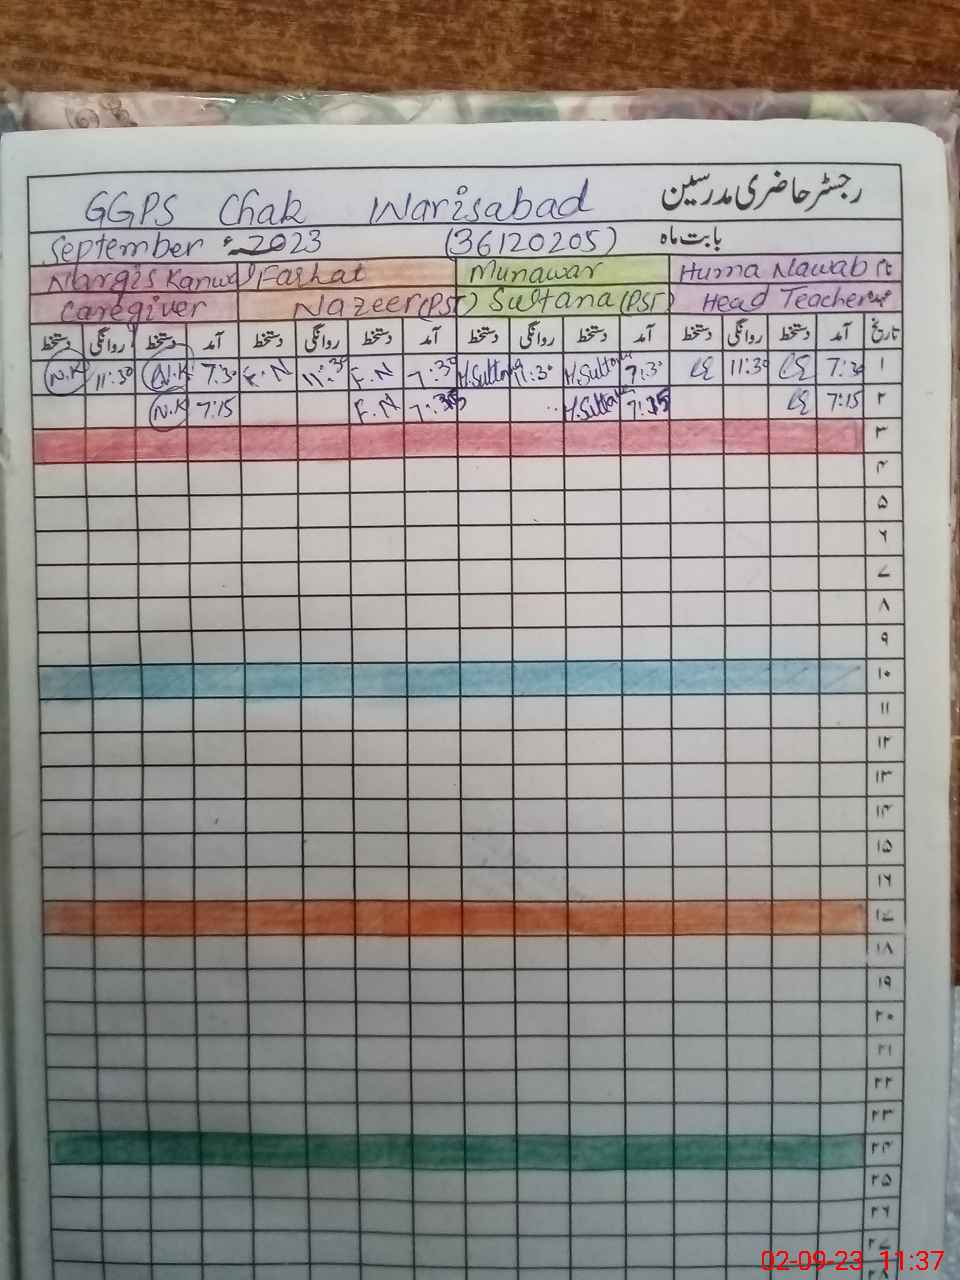 رجسٹر حاضری مدرسین
GGPS Chak Warisabad
بابت ماہ (36120205) September 2023ء
Huma Nawab Munawar Farhat Nargis Kanwal
Head Teacher Sultana (PST) Nazeer (PST) Caregiver
تاریخ آمد دستخط روانگی دستخط آمد دستخط روانگی دستخط آمد دستخط روانگی دستخط آمد دستخط روانگی دستخط
۱ 7:30 11:30 7:30 M.Sultana 11:30 M.Sultana 7:30 F.N 11:30 F.N 7:30 N.K 11:30 N.K
۲ 7:15 M.Sultana F.N 7:15 N.K
۳
۴
۵
۶
۷
۸
۹
۱۰
۱۱
۱۲
۱۳
۱۴
۱۵
۱۶
۱۷
۱۸
۱۹
۲۰
۲۱
۲۲
۲۳
۲۴
۲۵
۲۶
۲۷
۲۸
02-09-23 11:37